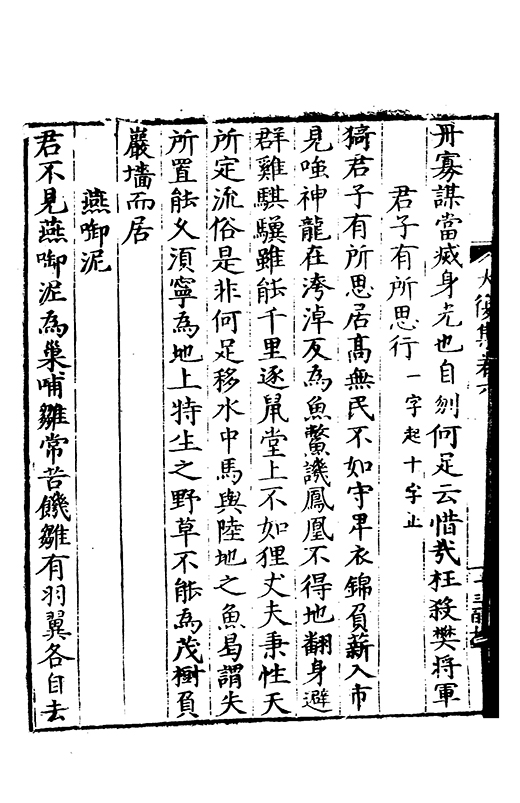 丹寡謀當威身光也自刎何足云惜哉枉殺樊將軍
君子有所思行一字起十字止
猗君子有所思居高無民不如守卑衣錦負薪入市
見嗤神龍在洿淖反為魚鱉譏鳳凰不得地翻身避
群雞騏驥雖能千里逐鼠堂上不如狸丈夫秉性天
所定流俗是非何足移水中馬與陸地之魚曷謂失
所置能久須寧為地上特生之野草不能為茂樹負
巖墻而居
燕啣泥
君不見燕啣泥為巢哺雛常苦饑雛有羽翼各自去
大復集卷六